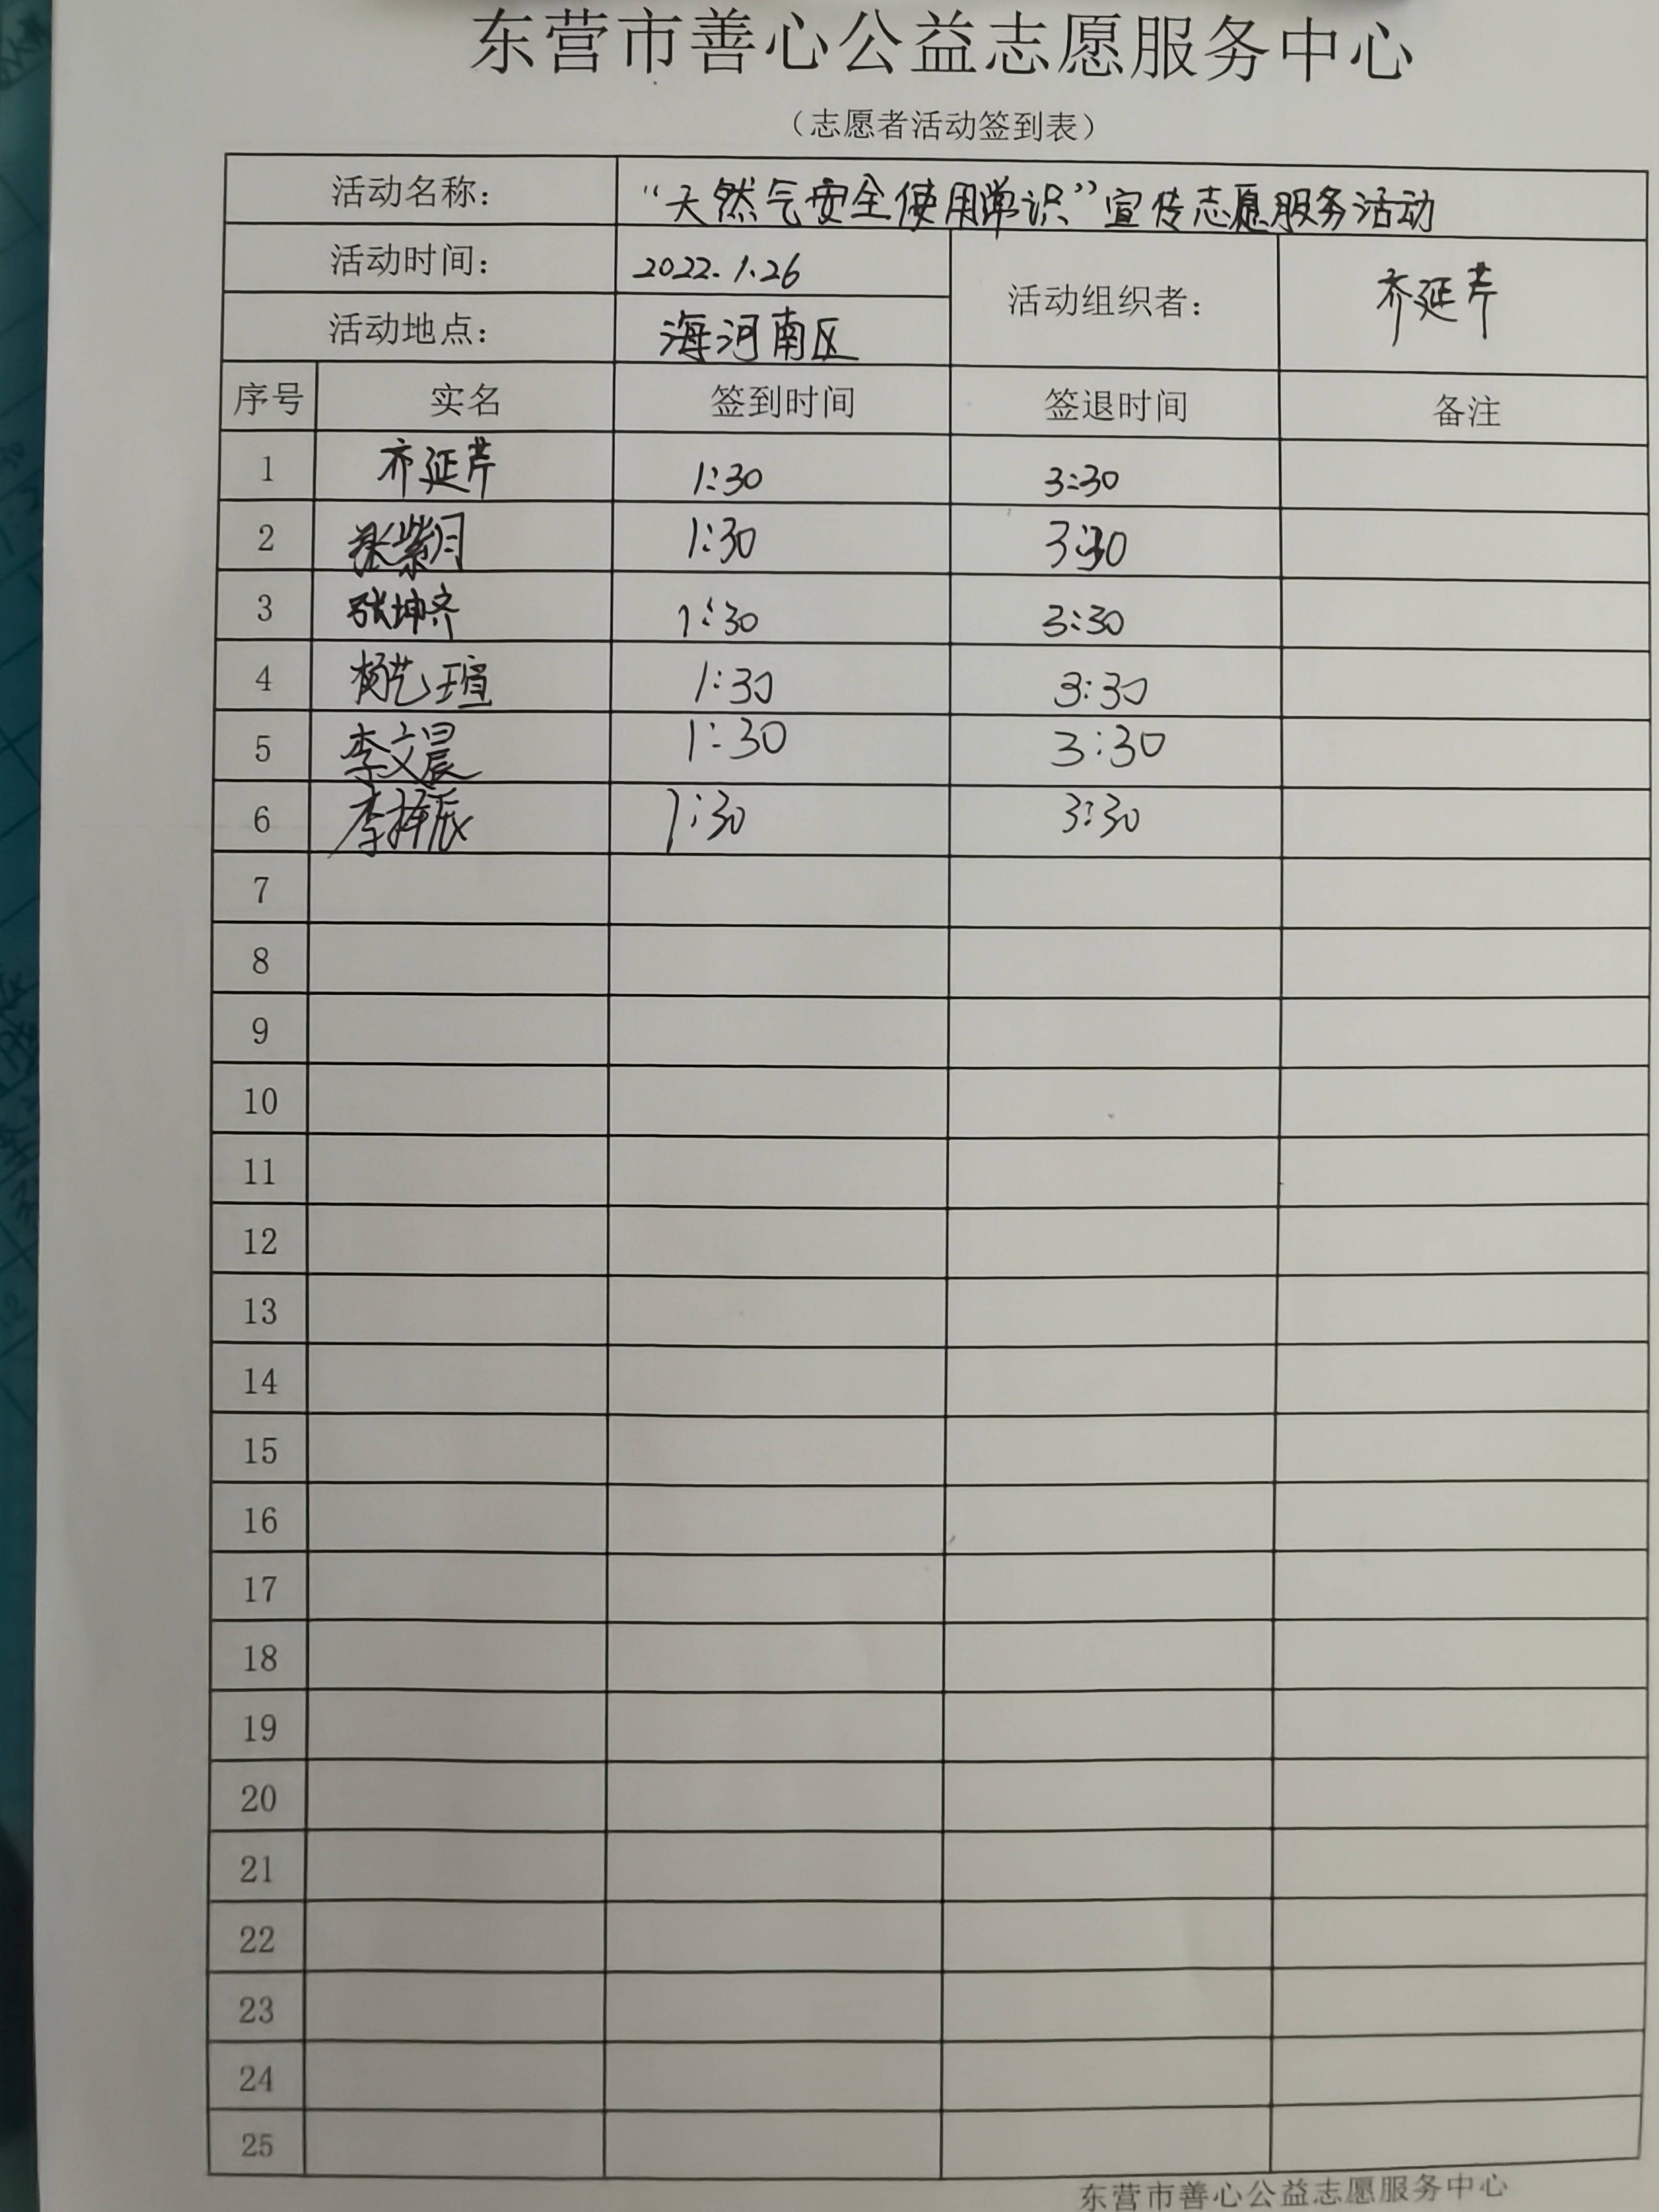 东营市善心公益志愿服务中心
（志愿者活动签到表）
活动名称： “天然气安全使用常识”宣传志愿服务活动
活动时间： 2022.1.26 活动组织者： 齐延芹
活动地点： 海河南区
序号 实名 签到时间 签退时间 备注
1 齐延芹 1:30 3:30
2 张紫月 1:30 3:30
3 张坤齐 1:30 3:30
4 杨艺瑄 1:30 3:30
5 李文晨 1:30 3:30
6 李梓辰 1:30 3:30
7
8
9
10
11
12
13
14
15
16
17
18
19
20
21
22
23
24
25
东营市善心公益志愿服务中心